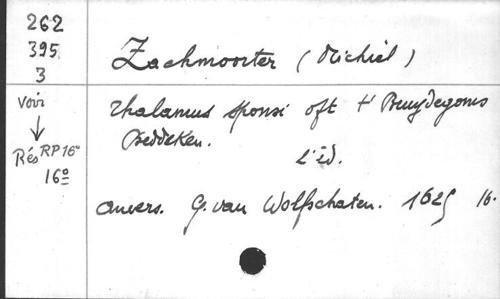 262
395
3
Zachmoorter (Michiel)
Voir
↓
Rés RP 16°
16º
Thalamus sponsi oft t' Bruydegoms
Beddeken.
2'éd.
Anvers. G. van Wolfschaten. 1625 16.